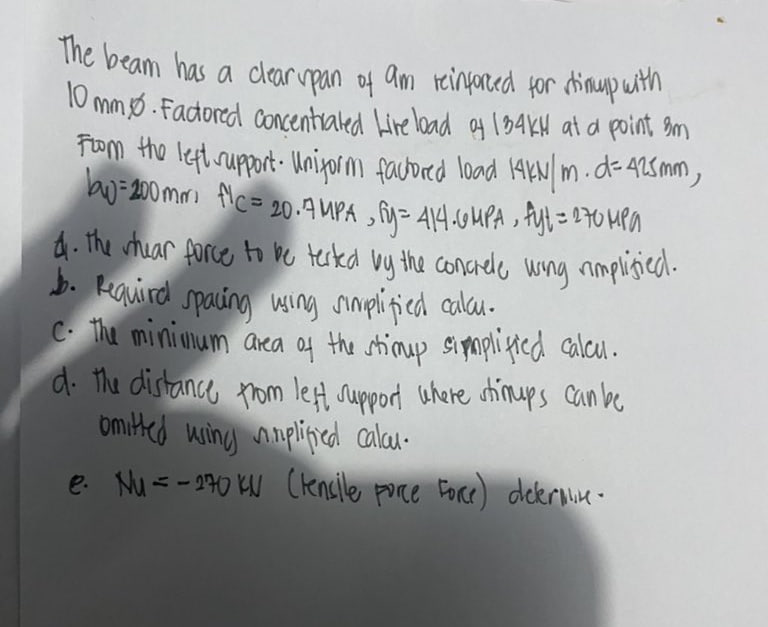 The beam has a clear span of 9m reinforced for stirrup with
10 mm Ø. Factored concentrated Live load of 134KN at a point 3m
From the left support. Uniform factored load 14KN/m. d=425mm,
bw=200mm, f'c= 20.7 MPA, fy= 414.6MPA, fyt=270 MPa
a. the shear force to be tested by the concrete using simplified.
b. Required spacing using simplified calcu.
c. The minimum area of the stirrup simplified calcu.
d. The distance from left support where stirrups can be
omitted using simplified calcu.
e. Nu = -270 KN (tensile force Force) determine.